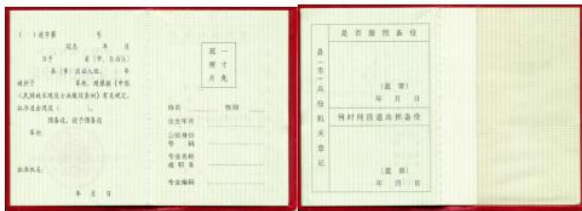 ( )退字第 号
同志 年 月
日于 省(市、自治区)
县(市)应征入伍, 年
被评为 军衔,现根据《中国
人民解放军现役士兵服役条例》有关规定,
批准退出现役( )。
预备役,授予预备役
军衔。
批准机关:
年 月 日
近 一
照 寸
片 免
姓名 性别
出生年月
公民身份
号 码
专业名称
或 职 务
专业编码
县(市)兵役机关登记
是 否 服 预 备 役
(盖 章)
年 月 日
何时何因退出预备役
(盖 章)
年 月 日